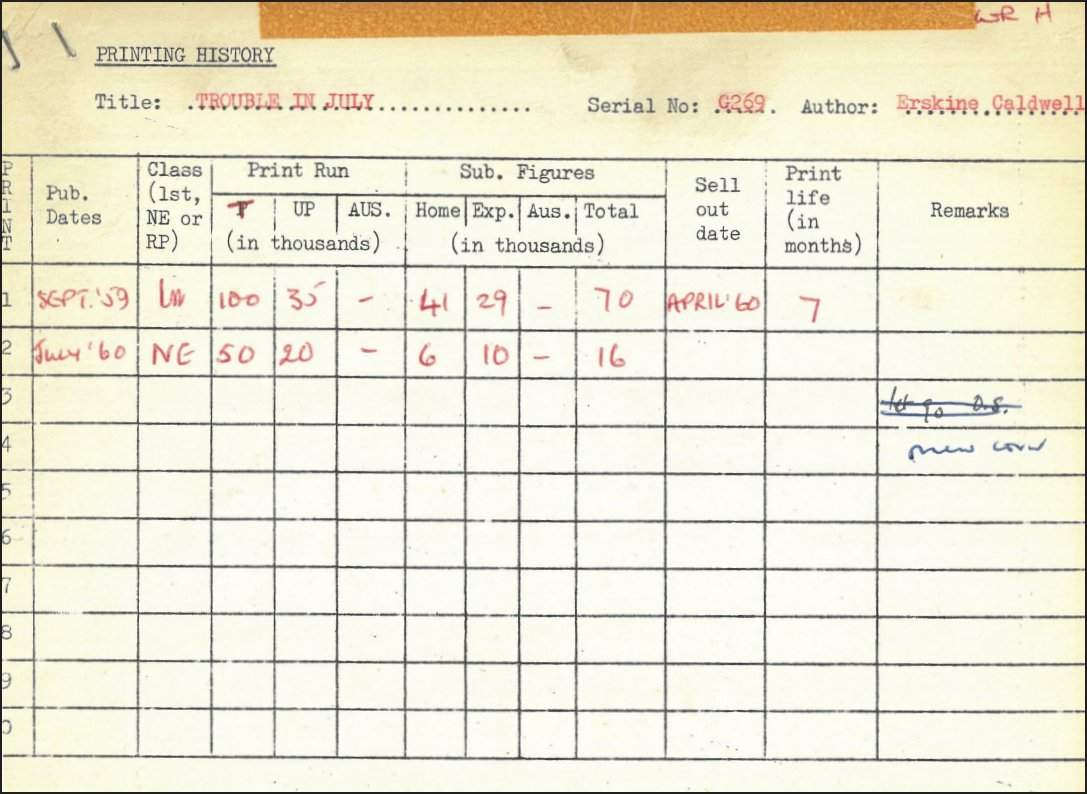 WR H
PRINTING HISTORY
Title: .TROUBLE IN JULY............... Serial No: G269. Author: Erskine Caldwell
PRINT
Pub. Dates
Class (1st, NE or RP)
Print Run
Sub. Figures
Sell out date
Print life (in months)
Remarks
UP AUS. Home Exp. Aus. Total
(in thousands) (in thousands)
1 SEPT. '59 100 35 - 41 29 - 70 APRIL '60 7
2 July '60 NE 50 20 - 6 10 - 16
3 let go O.S.
4 new cover
5
6
7
8
9
0